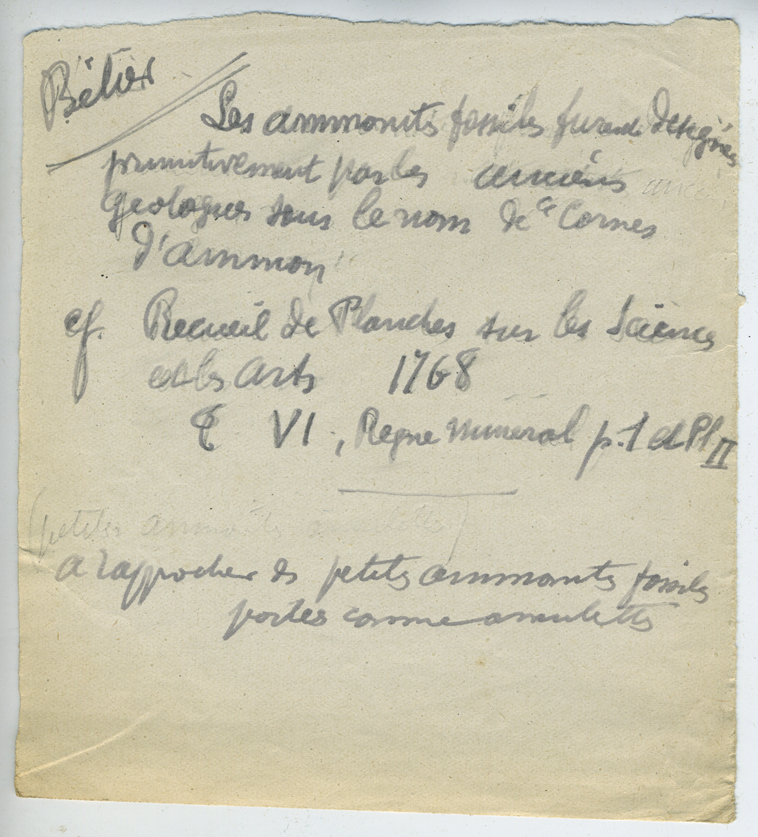 Bélier
Les ammonites fossiles furent désignées
primitivement par les anciens
géologues sous le nom de "Cornes
d'ammon"
cf. Recueil de Planches sur les Sciences
et les Arts 1768
T VI, Règne minéral p. 1 et Pl II
(petites ammonites amulettes)
a rapprocher des petites ammonites fossiles
portées comme amulettes